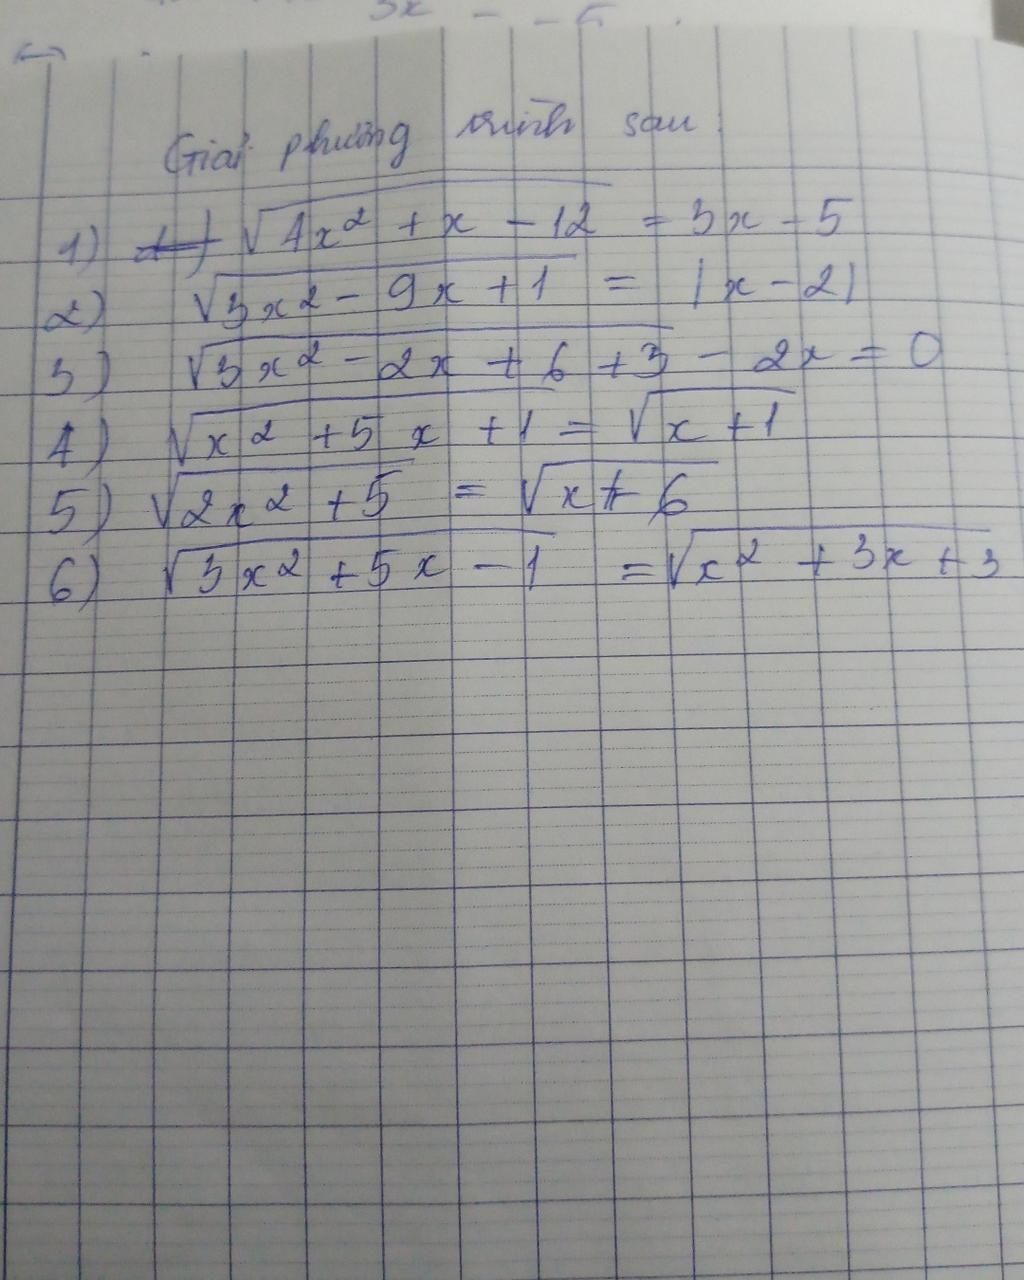 3x - - 5
Giải phương trình sau:
1) √4x² + x - 12 = 3x - 5
2) √3x² - 9x + 1 = |x - 2|
3) √3x² - 2x + 6 + 3 - 2x = 0
4) √x² + 5x + 1 = √x + 1
5) √2x² + 5 = √x + 6
6) √3x² + 5x - 1 = √x² + 3x + 3